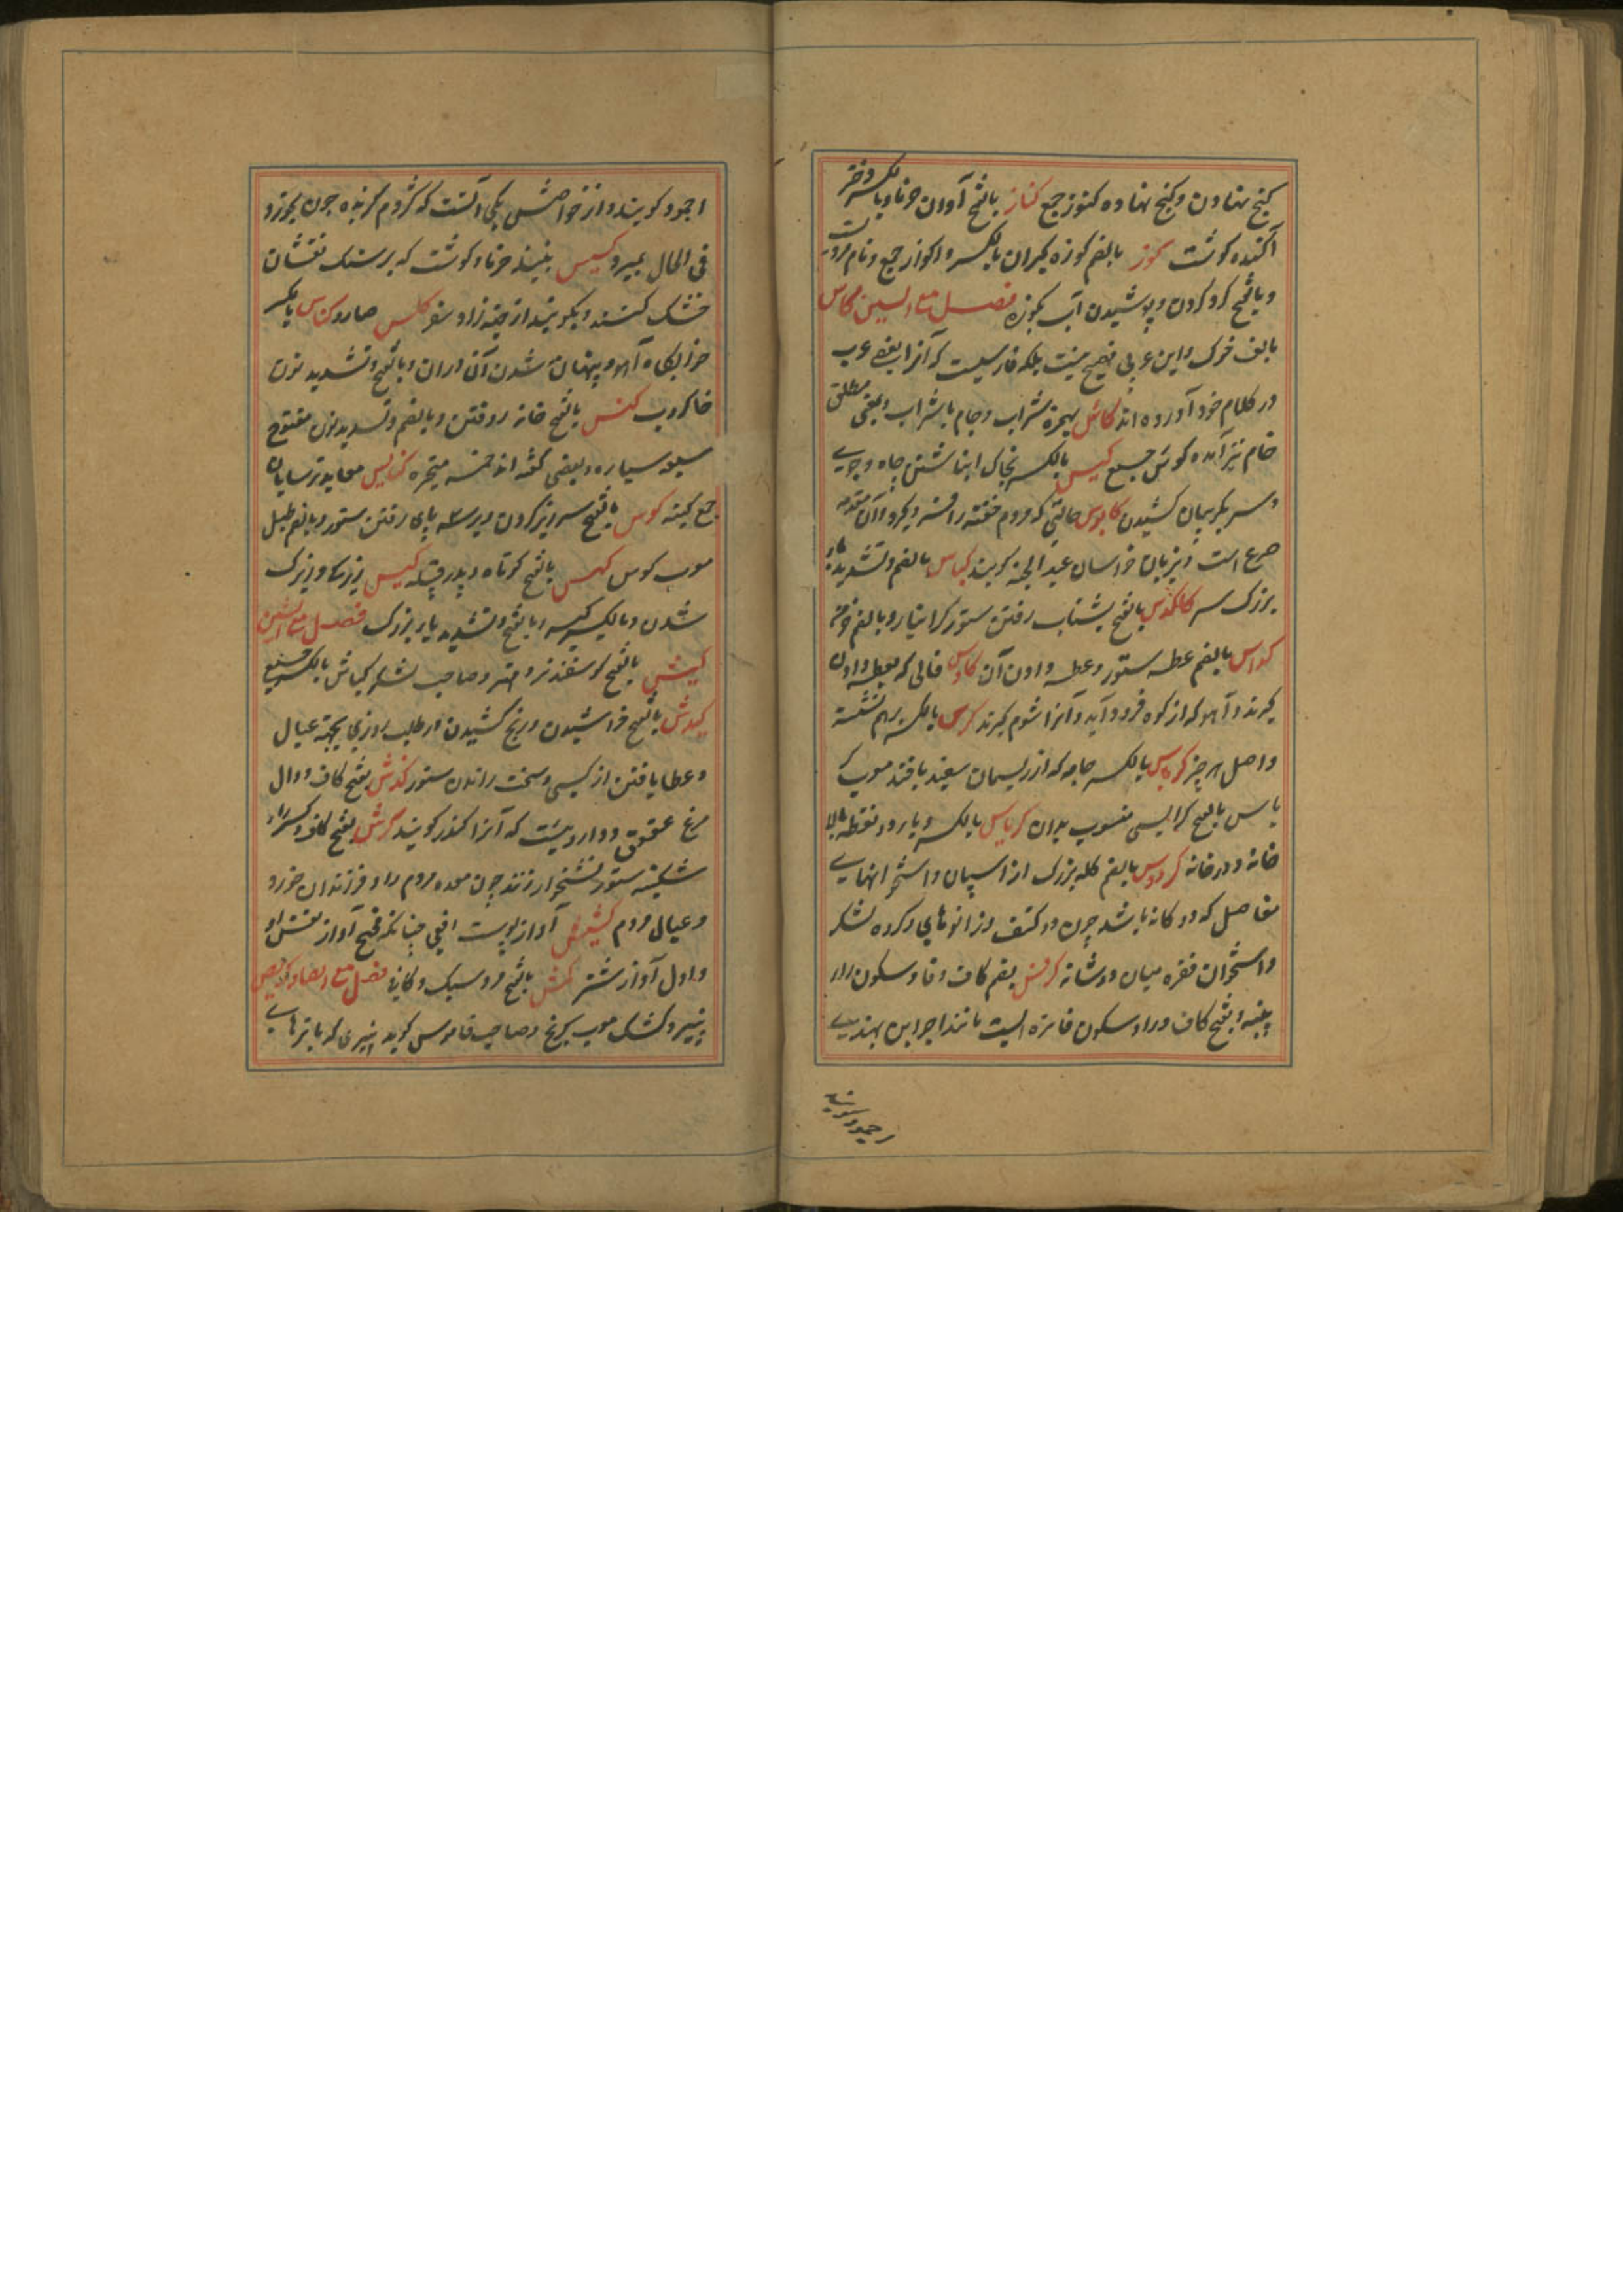 کنج نهادن و کنج نهاده کنوز جمع کناز بالفتح آوردن خرما و بالکسر دختر
آکنده کوشت کوز بالضم کوزه کیران بالکسر و اکواز جمع و نام مردیست
و بالفتح کرد کردن و پوشیدن آب بکوزه فصل مع السین کاس
بالف خوک و این عربی فصیح نیست بلکه فارسیست که آنرا بعضی عرب
در کلام خود آورده اند کاس بهمزه شراب و جام باشراب و بمعنی مطلق
خام نیز آمده کوس جمع کبس بالکسر بخاک انباشتن چاه و جوی
و سر بکریبان کشیدن کابوس حالتی که مردم خفته را فشرد بکرد و آن مقدمه
صرع است و بزبان خراسان عبد الجنه کویند کباس بالضم و تشدید با
بزرک سر کلکدس بالفتح بشتاب رفتن ستور کرانبار و بالضم خرمن
کداس بالضم عطسه ستور و عطسه دادن آن کادس فالی که بعطسه دادن
کیرند و آهو که از کوه فرود آید و آنرا شوم کیرند کرس بالکسر برهم نشسته
و اصل هر چیز کرباس بالکسر جامه که از ریسمان سفید بافند معرب
باس بالفتح کرابیسی منسوب بدان کریاس بالکسر و یا دو نقطه بالا
خانه و درخانه کردوس بالضم کله بزرک از اسپان و استخوانهای
مفاصل که دو کانه باشد چون دو کتف و زانوهای و کرده لشکر
و استخوان فقره میان دو شانه کرفس بضم کاف و فا و سکون را
پنبه و بفتح کاف و را و سکون فا تره ایست مانند اجواین بهندی
اجمود کویند
اجمود کویند و از خواصش یکی آنست که کژدم کزیده چون بخورد
فی الحال بمیرد کسیس نبیذ خرما و کوشت که بر سنک نقشان
خشک کنند و بکوبند از جهة زاد سفر کلس صارو کناس بالکسر
خوابکاه آهو و پنهان شدن آن در آن و بالفتح و تشدید نون
خاکروب کنس بالفتح خانه روفتن و بالضم و تشدید نون مفتوح
سبعه سیاره و بعضی کفته اند خمسه متحیره کنایس معابد ترسایان
جمع کنیسه کوس بالفتح سرزیر کردن و بر سه پای رفتن ستور و بالضم طبل
معرب کوس کهمس بالفتح کوتاه و پدر قبیله کیس زیرکی و زیرک
شدن و بالکسر کیسه و بالفتح و تشدید یا زیرک فصل مع الشین
کبش بالفتح کوسفند نر و مهتر و صاحب لشکر کباش بالکسر جمع
کدش بالفتح خراشیدن و رنج کشیدن در طلب روزی بجهة عیال
و عطا یافتن از کسی و سخت راندن ستور کندش بضم کاف و دال
مرغ عقعق و داروئیست که آنرا کندر کویند کرش بفتح کاف و کسر را
شکنبه ستور نشخوار زننده چون معده مردم را و فرزندان خورد
و عیال مردم کشیش آواز پوست افعی چنانکه فحیح آواز نفس او
و اول آواز شتر کمش بالفتح مرد سبک و کافی فصل مع الصاد کریص
پنیر و کشک معرب کریخ و صاحب قاموس کوید پنیری که با ترهای